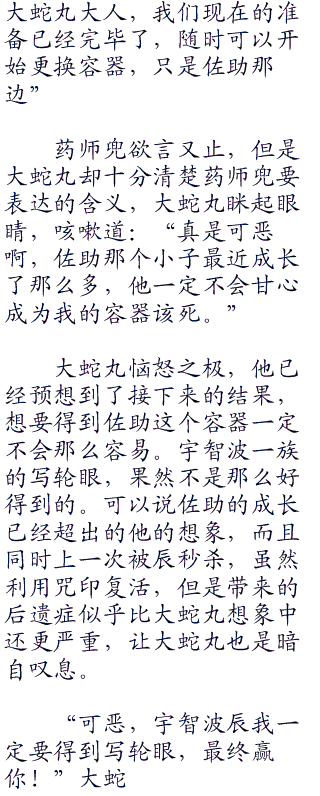 大蛇丸大人，我们现在的准
备已经完毕了，随时可以开
始更换容器，只是佐助那
边”
药师兜欲言又止，但是
大蛇丸却十分清楚药师兜要
表达的含义，大蛇丸眯起眼
睛，咳嗽道：“真是可恶
啊，佐助那个小子最近成长
了那么多，他一定不会甘心
成为我的容器该死。”
大蛇丸恼怒之极，他已
经预想到了接下来的结果，
想要得到佐助这个容器一定
不会那么容易。宇智波一族
的写轮眼，果然不是那么好
得到的。可以说佐助的成长
已经超出的他的想象，而且
同时上一次被辰秒杀，虽然
利用咒印复活，但是带来的
后遗症似乎比大蛇丸想象中
还更严重，让大蛇丸也是暗
自叹息。
“可恶，宇智波辰我一
定要得到写轮眼，最终赢
你！”大蛇